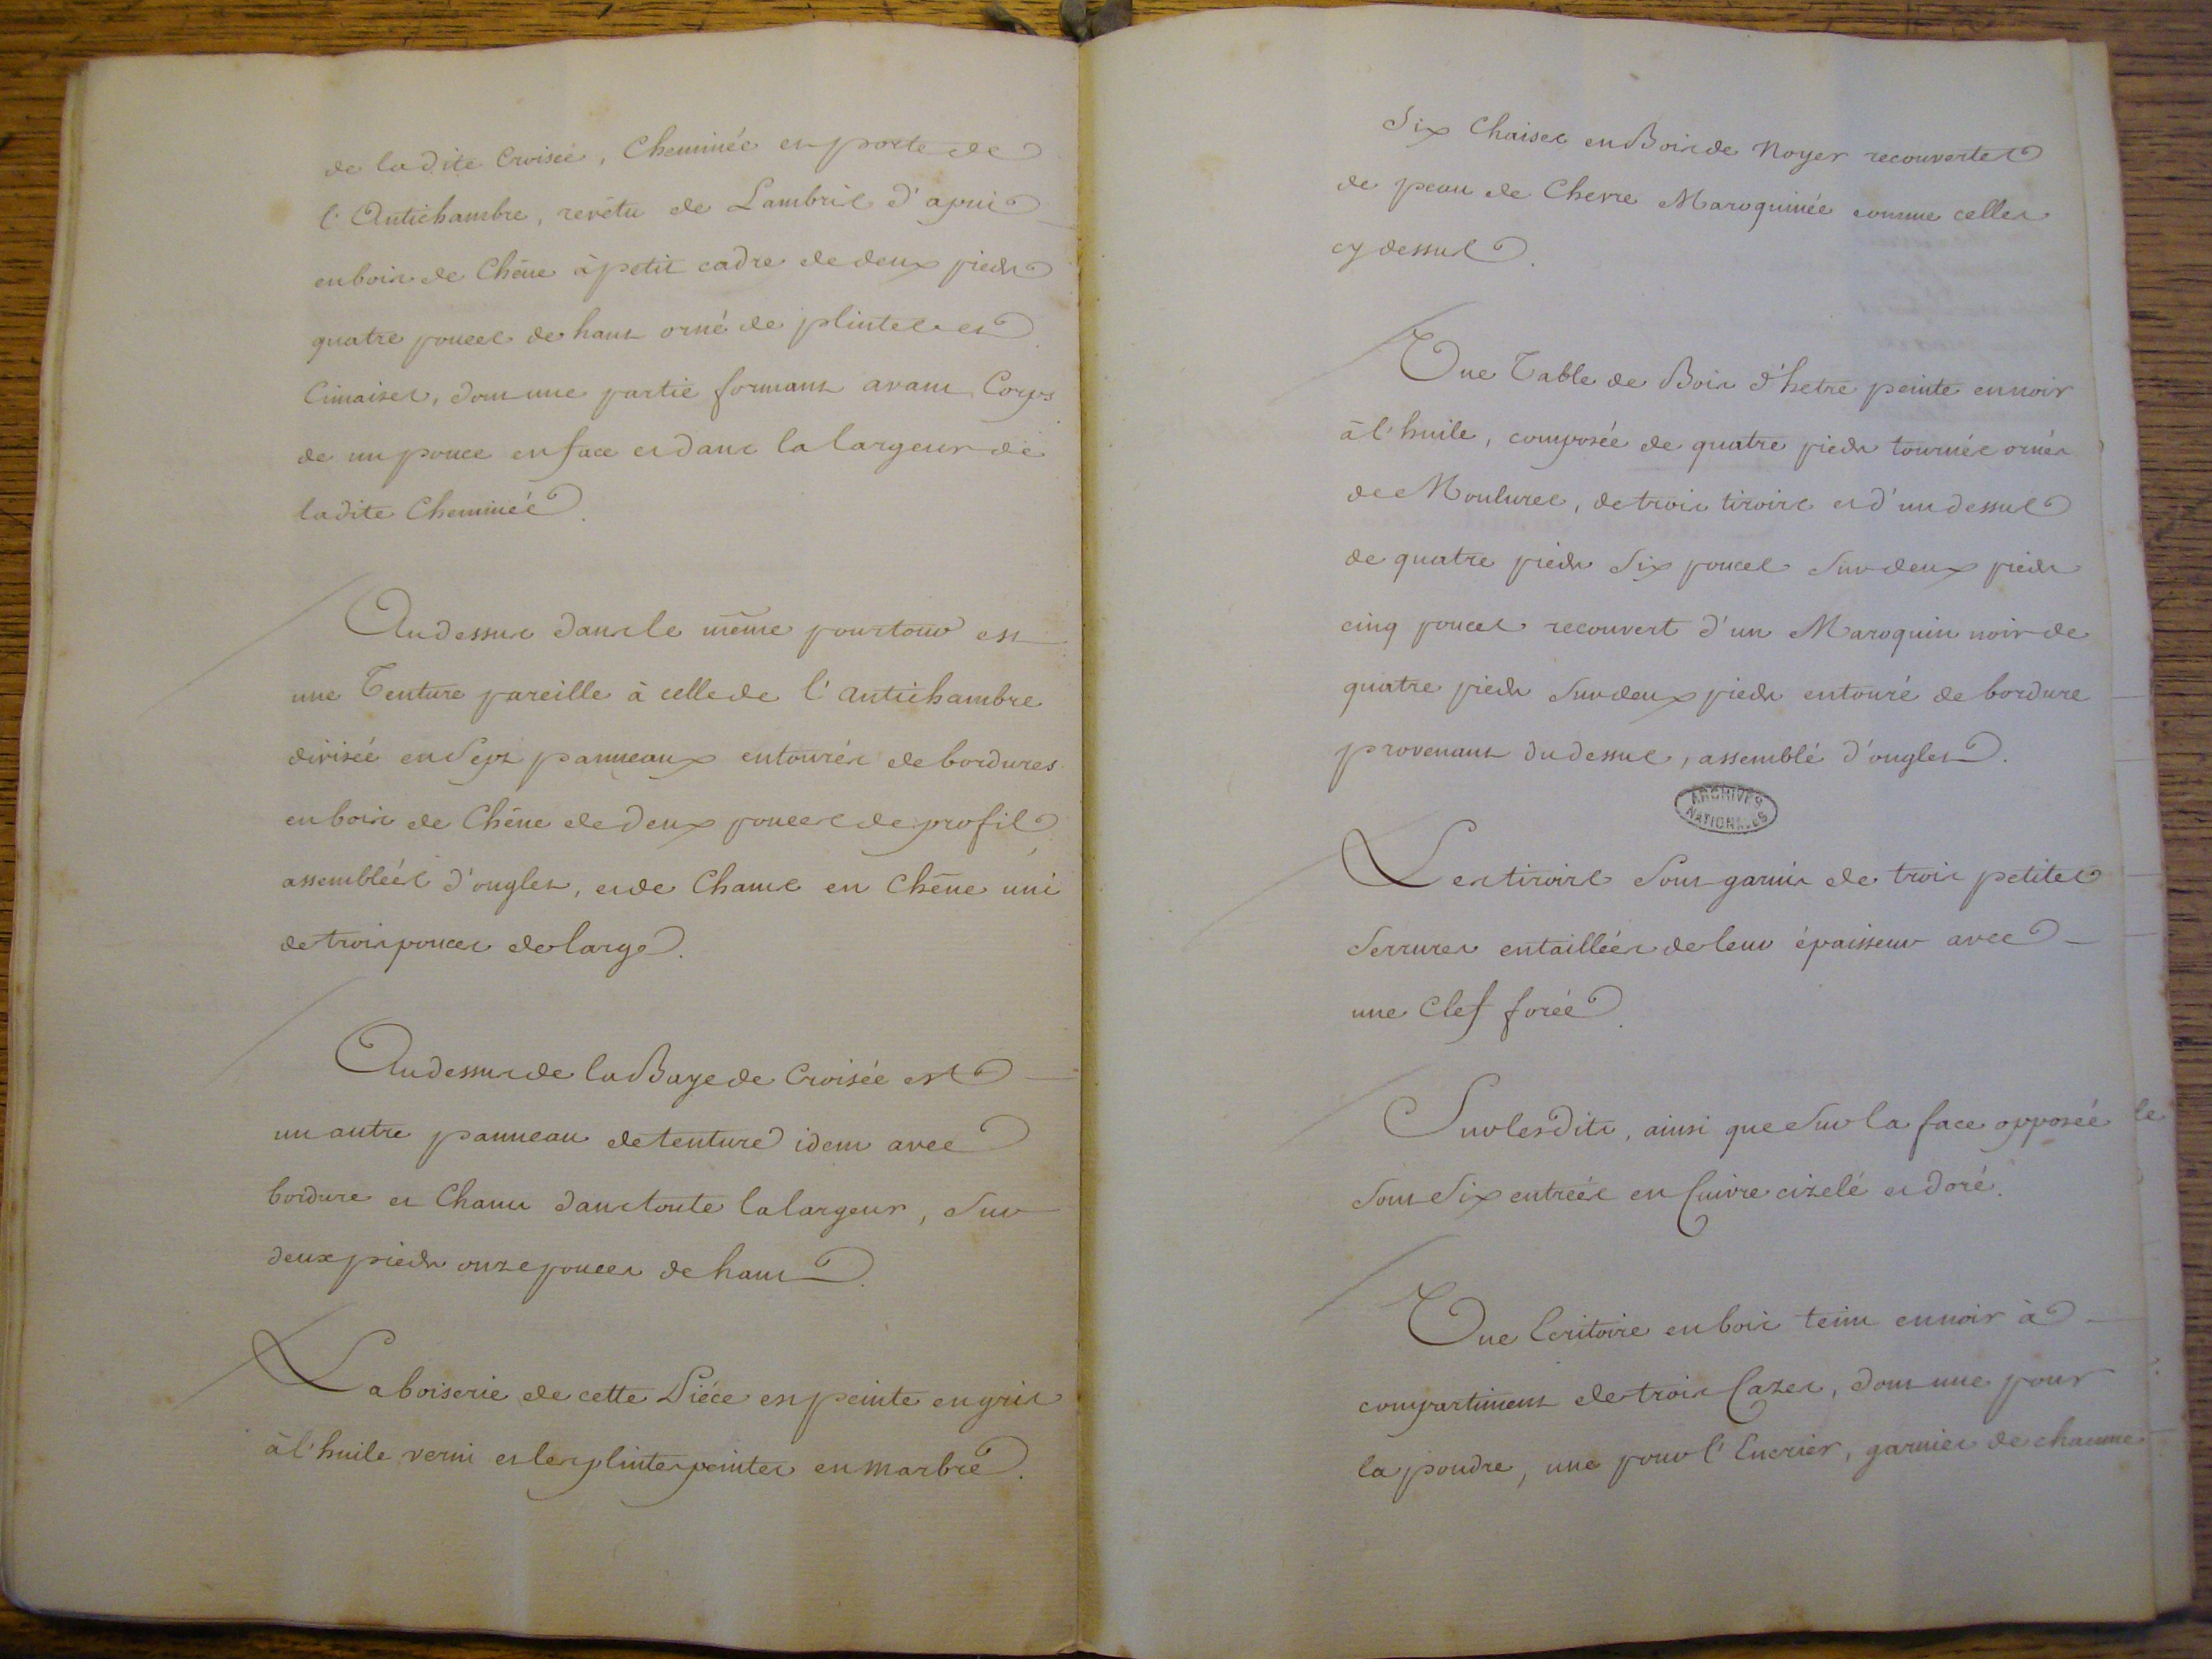 de ladite Croisée, Cheminée et porte de
l'Antichambre, revêtu de Lambris d'apui
en bois de Chêne à petit cadre de deux pieds
quatre pouces de haut orné de plintes et
Cimaises, dont une partie formant avant Corps
de un pouce en face et dans la largeur de
ladite Cheminée.
Au dessus dans le même pourtour est
une Tenture pareille à celle de l'antichambre
divisée en Sept panneaux entourés de bordures
en bois de Chêne de deux pouces de profil,
assemblées d'onglet, et de Chans en Chêne uni
de trois pouces de large.
Au dessus de la Baye de Croisée est
un autre panneau de tenture idem avec
bordure et Chans dans toute la largeur, Sur
deux pieds onze pouces de haut.
La boiserie de cette Piéce est peinte en gris
à l'huile verni et les plintes peintes en marbre.
Six Chaises en Bois de Noyer recouvertes
de peau de Chevre Maroquinée comme celles
cy dessus.
Une Table de Bois d'hetre peinte en noir
à l'huile, composée de quatre pieds tournés ornés
de Moulures, de trois tiroirs et d'un dessus
de quatre pieds Six pouces Sur deux pieds
cinq pouces recouvert d'un Maroquin noir de
quatre pieds Sur deux pieds entouré de bordure
provenant du dessus, assemblé d'onglet.
ARCHIVES
NATIONALES
Les tiroirs Sont garnis de trois petites
Serrures entaillées de leur épaisseur avec
une Clef forée.
Sur lesdits, ainsi que Sur la face opposée
Sont Six entrées en Cuivre cizelé et doré.
Une Ecritoire en bois teint en noir à
compartiment de trois Cazes, dont une pour
la poudre, une pour l'Encrier, garnies de chacune
le